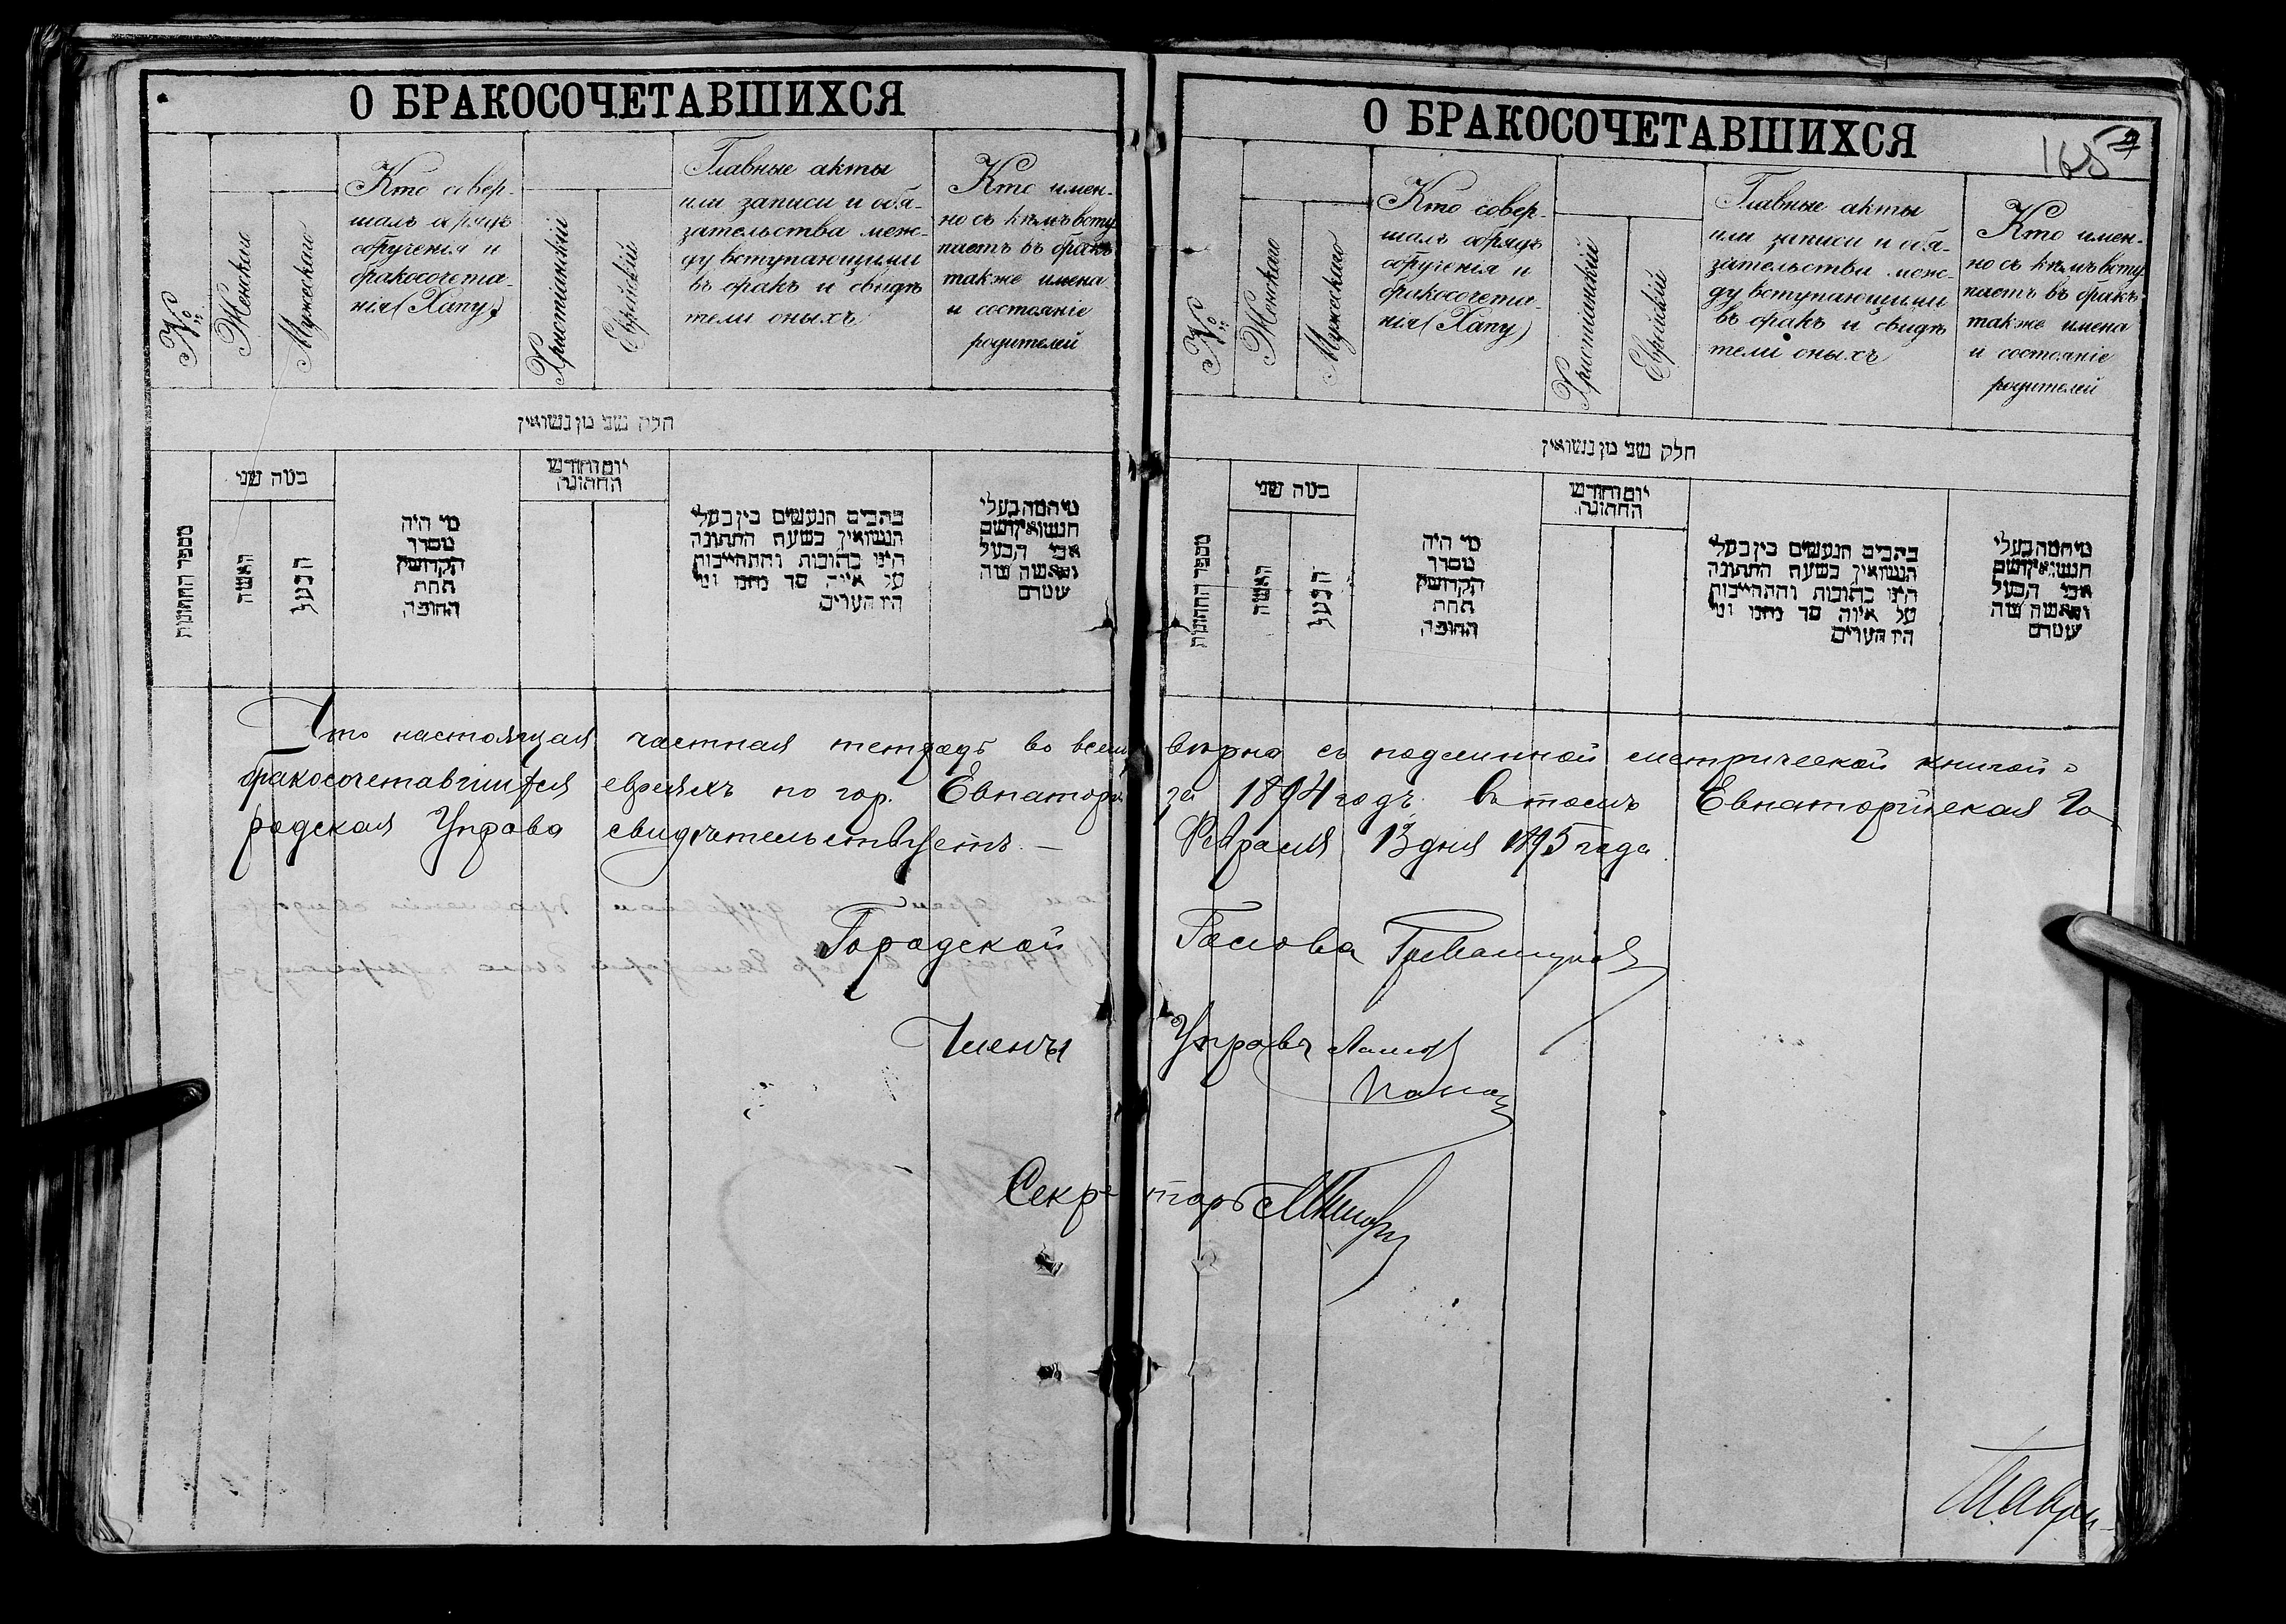 О БРАКОСОЧЕТАВШИХСЯ
№
Женская
Мужеская
Кто совер-
шалъ обрядъ
обрученія и
бракосочета-
нія (Хапу)
Христіанскій
Еврейскій
Главные акты
или записи и обя-
зательства меж-
ду вступающими
въ бракъ и свидѣ
тели оныхъ
Кто имен-
но съ кѣмъ всту
паетъ въ бракъ
также имена
и состояніе
родителей
חלק שני מן נשואין
מספר החתונות
במה שני
האשה
הבעל
מי היה
מסדר
הקדושין
תחת
החופה
יום וחודש
החתונה
כתבים הנעשים בין בעלי
הנשואין בשעת החתונה
היינו כתובות והתחייבות
על איזה סך נתנו ומי
היו העדים
אבי הבעל
О БРАКОСОЧЕТАВШИХСЯ
165
№
Женская
Мужеская
Кто совер-
шалъ обрядъ
обрученія и
бракосочета-
нія (Хапу)
Христіанскій
Еврейскій
Главные акты
или записи и обя-
зательства меж-
ду вступающими
въ бракъ и свидѣ
тели оныхъ
Кто имен-
но съ кѣмъ всту
паетъ въ бракъ
также имена
и состояніе
родителей
חלק שני מן נשואין
מספר החתונות
במה שני
האשה
הבעל
מי היה
מסדר
הקדושין
תחת
החופה
יום וחודש
החתונה
כתבים הנעשים בין בעלי
הנשואין בשעת החתונה
היינו כתובות והתחייבות
על איזה סך נתנו ומי
היו העדים
אבי הבעל
Что настоящая частная тетрадь во всемъ вѣрна съ подлинной метрической книгой о
бракосочетавшихся евреяхъ по гор. Евпаторіи за 1894 годъ въ томъ Евпаторійская Го
родская Управа свидѣтельствуетъ. — Февраля 13 дня 1895 года.
Городской Голова
Члены Управы
Секретарь
Таври-